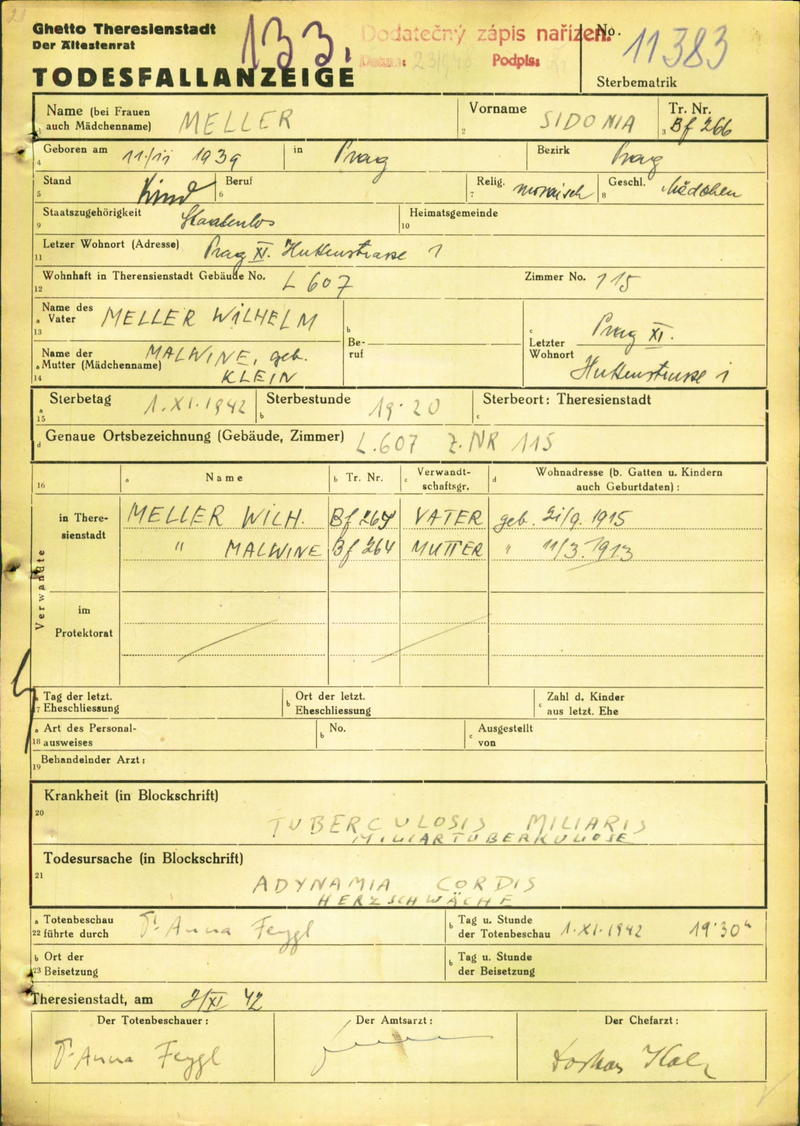 Ghetto Theresienstadt
Der Ältestenrat
TODESFALLANZEIGE
133.
Dodatečný zápis nařízen:
Podpis:
No. 11383
Sterbematrik
Name (bei Frauen auch Mädchenname) MELLER
1
Vorname SIDONIA
2
Tr. Nr. Bf 266
3
Geboren am 11/11 1939 in Prag Bezirk Prag
4
Stand Kind Beruf Relig. mosaisch Geschl. Mädchen
5 6 7 8
Staatszugehörigkeit Staatenlos Heimatsgemeinde
9 10
Letzer Wohnort (Adresse) Prag XI. Huttenstrasse 1
11
Wohnhaft in Therensienstadt Gebäude No. L 607 Zimmer No. 115
12
Name des
a Vater MELLER WILHELM
13
Name der MALWINE, geb.
a Mutter (Mädchenname) KLEIN
14
b
Be-
ruf
c
Letzter
Wohnort
Prag XI.
Huttenstrasse 1
a Sterbetag 1.XI.1942 b Sterbestunde 19·20 c Sterbeort: Theresienstadt
15
d Genaue Ortsbezeichnung (Gebäude, Zimmer) L.607 Z.NR 115
16 a Name b Tr. Nr. c Verwandt-schaftsgr. d Wohnadresse (b. Gatten u. Kindern auch Geburtdaten):
Verwandte
in There-
sienstadt
MELLER WILH. Bf 264 VATER geb. 21/9. 1915
" MALWINE Bf 264 MUTTER " 11/3.1913
im
Protektorat
a Tag der letzt. Eheschliessung b Ort der letzt. Eheschliessung c Zahl d. Kinder aus letzt. Ehe
17
a Art des Personal-ausweises b No. c Ausgestellt von
18
Behandelnder Arzt:
19
Krankheit (in Blockschrift)
20
TUBERCULOSIS MILIARIS
MILIARTUBERKULOSE
Todesursache (in Blockschrift)
21
ADYNAMIA CORDIS
HERZSCHWÄCHE
a Totenbeschau
22 führte durch Dr. Anna Feygl
b Tag u. Stunde
der Totenbeschau 1.XI.1942 19·30h
b Ort der
23 Beisetzung
b Tag u. Stunde
der Beisetzung
Theresienstadt, am 2/XI 42
Der Totenbeschauer: Der Amtsarzt: Der Chefarzt:
Dr. Anna Feygl